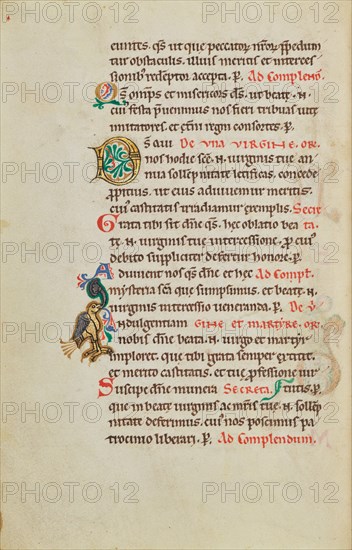 euntes. qs ut que peccatoꝝ nroꝝ p̄pedim
tur obstaculis. illius meritis et interces
sionibꝫ redeptos accepta. P. Ad Complend.
Os om̄ps et misericors ds. ut beate .N.
cui festa p̄uenimus nos fieri tribuas uite
imitatores. et et̄ni regni consortes. P.
DS QUI De una virgine. or.
nos hodie sc̄e .N. uirginis tue an
nua sollēpnitate letificas. concede
p̄pitius. ut eius adiuuemur meritis.
cuius castitatis irradiamur exemplis. Secre
Grata tibi sit dn̄e qs. hec oblatio bea ta.
te .N. uirginis tue intercessione. P. cui
debito suppliciter deferim honore. P.
Adiuuent nos qs dn̄e et hec Ad Compl.
mysteria sc̄a que sumpsimus. et beate .N.
uirginis intercessio ueneranda. P. De v̄
Indulgentiam gine et martyre. or.
nobis dn̄e beata .N. uirgo et martyr
imploret. que tibi grata semper extitit.
et merito castitatis. et tue p̄fessione uir
Suscipe dn̄e munera Secreta. tutis. P.
que in beate uirginis ac mr̄is tue .N. sollēp
nitate deferimus. cuius nos poscimus pa
trocinio liberari. P. Ad Complendum.
PHOTO 12